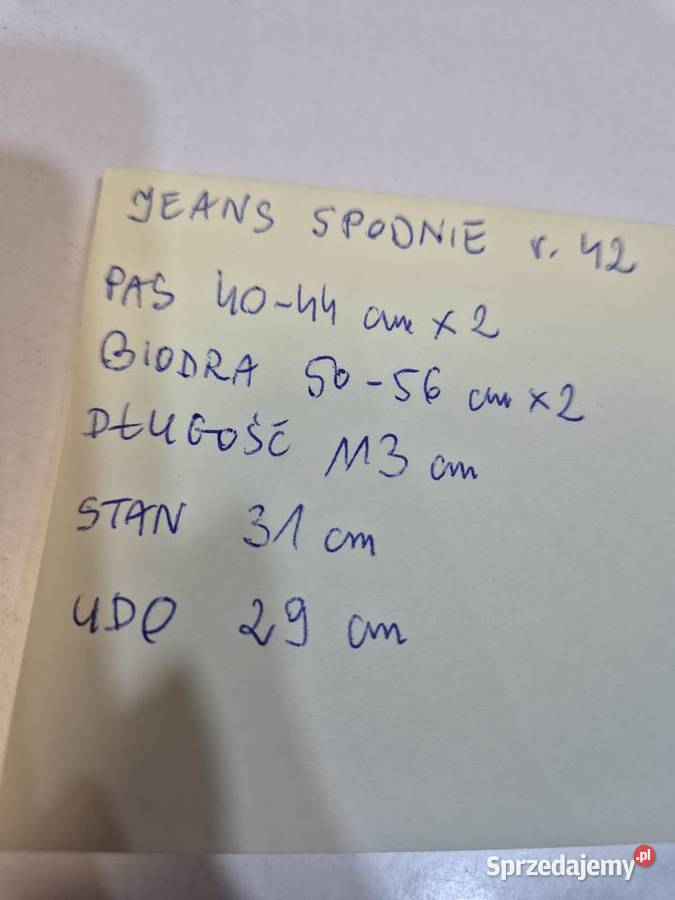 JEANS SPODNIE r. 42
PAS 40-44 cm x 2
BIODRA 50-56 cm x 2
DŁUGOŚĆ 113 cm
STAN 31 cm
UDO 29 cm
Sprzedajemy.pl